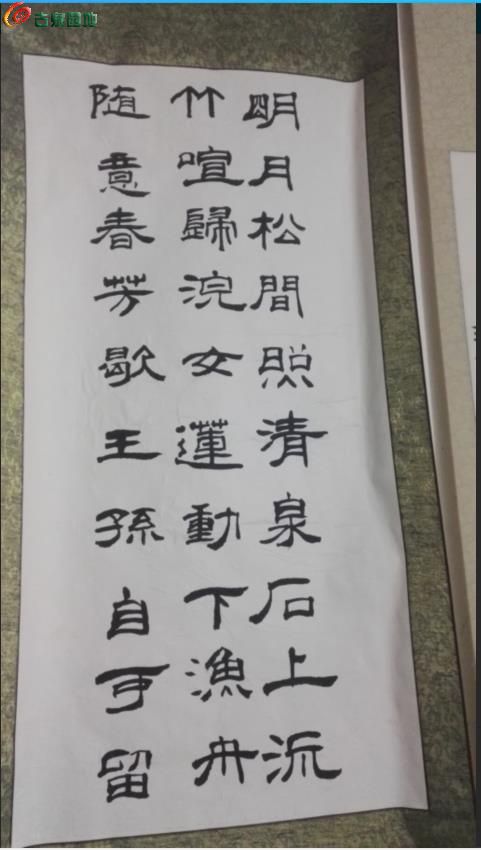 古泉园地
明月松間照清泉石上流
竹喧歸浣女蓮動下漁舟
随意春芳歇王孫自可留